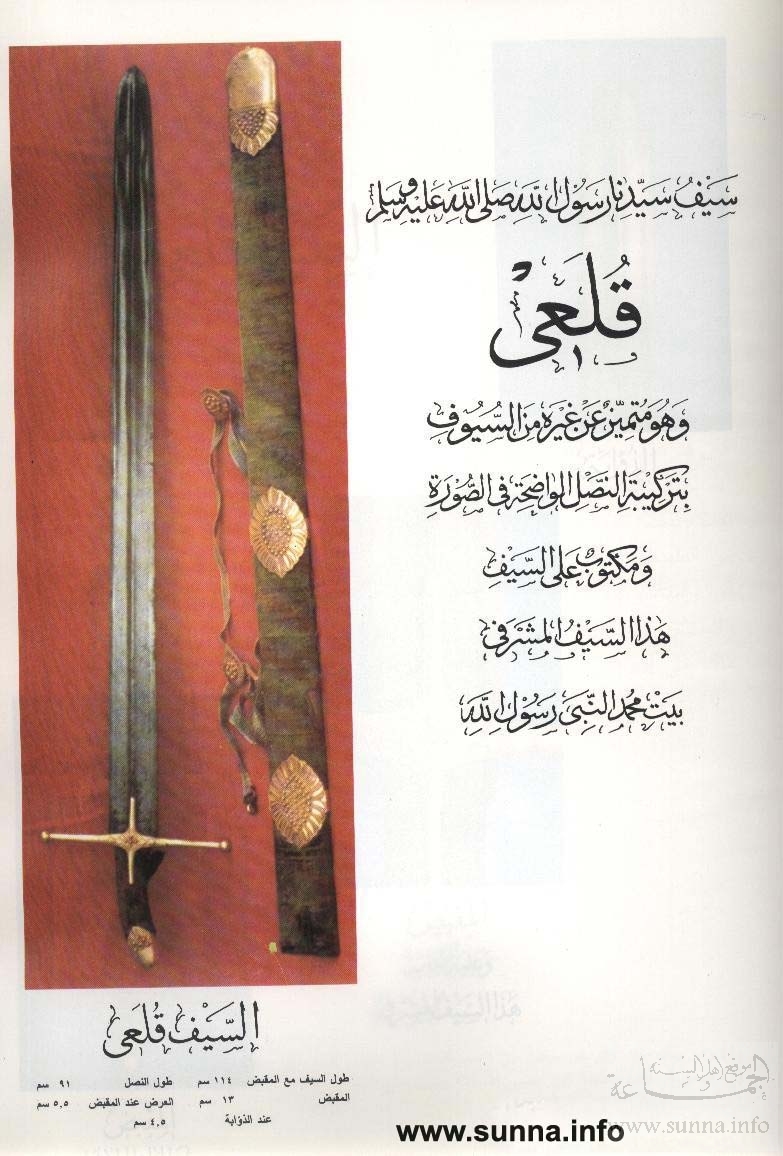 سَيْفُ سَيِّدِنا رَسُولِ اللهِ صَلَّى اللهُ عَلَيْهِ وَسَلَّم
قُلَعِى
وَهُوَ مُتَمَيِّزٌ عَنْ غَيْرِهِ مِنَ السُّيُوفِ
بِتَرْكِيبَةِ النَّصْلِ الوَاضِحَةِ فِى الصُّورَةِ
وَمَكْتُوبٌ عَلَى السَّيْفِ
هَذَا السَّيْفُ المَشْرَفِى
بَيْتِ مُحَمَّدٍ النَّبِى رَسُولِ اللهِ
السَّيْف قُلَعِى
طول السيف مع المقبض ١١٤ سم طول النصل ٩١ سم
المقبض ١٣ سم العرض عند المقبض ٥,٥ سم
عند الذؤابة ٤,٥ سم
موقع اهل السنة
والجماعة
www.sunna.info
www.sunna.info